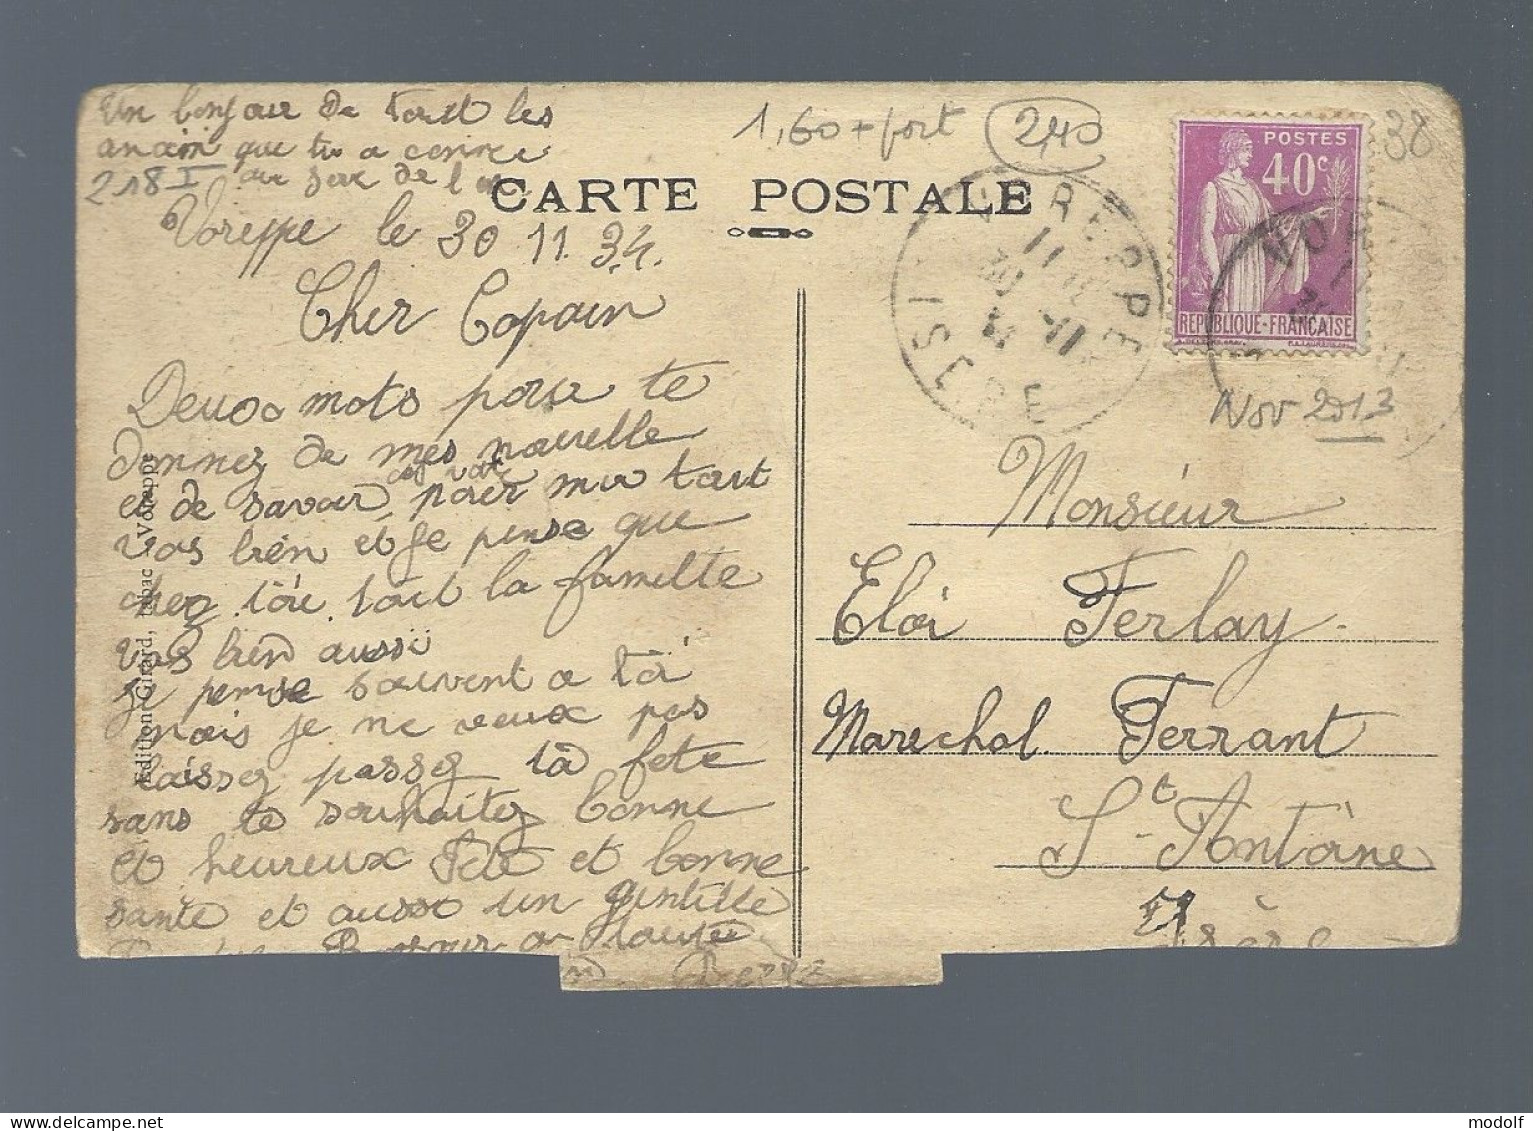 Un bonjour de tout les
anaim que tu a connue
au de l'
218 I
1,60 + fort
2,40
38
CARTE POSTALE
Voreppe le 30 11. 34.
Cher Copain
Deux mots pour te
donnez de mes nouvelle
et de savoir pour mu tout
vas bien et je pense que
chez toi tout la famille
vas bien aussi
je pense souvent a toi
mais je ne veux pas
laissez passez ta fete
sans te souhaitez bonne
et heureux Fête et bonne
sante et aussi un gentille
toute
Edition Girard, tabac Voreppe
POSTES
40c
REPUBLIQUE-FRANCAISE
VOREPPE
ISERE
11
30 -11
34
Nov 2013
Monsieur
Eloi Ferlay
Marechal Ferrant
St Antoine
Isère
modolf